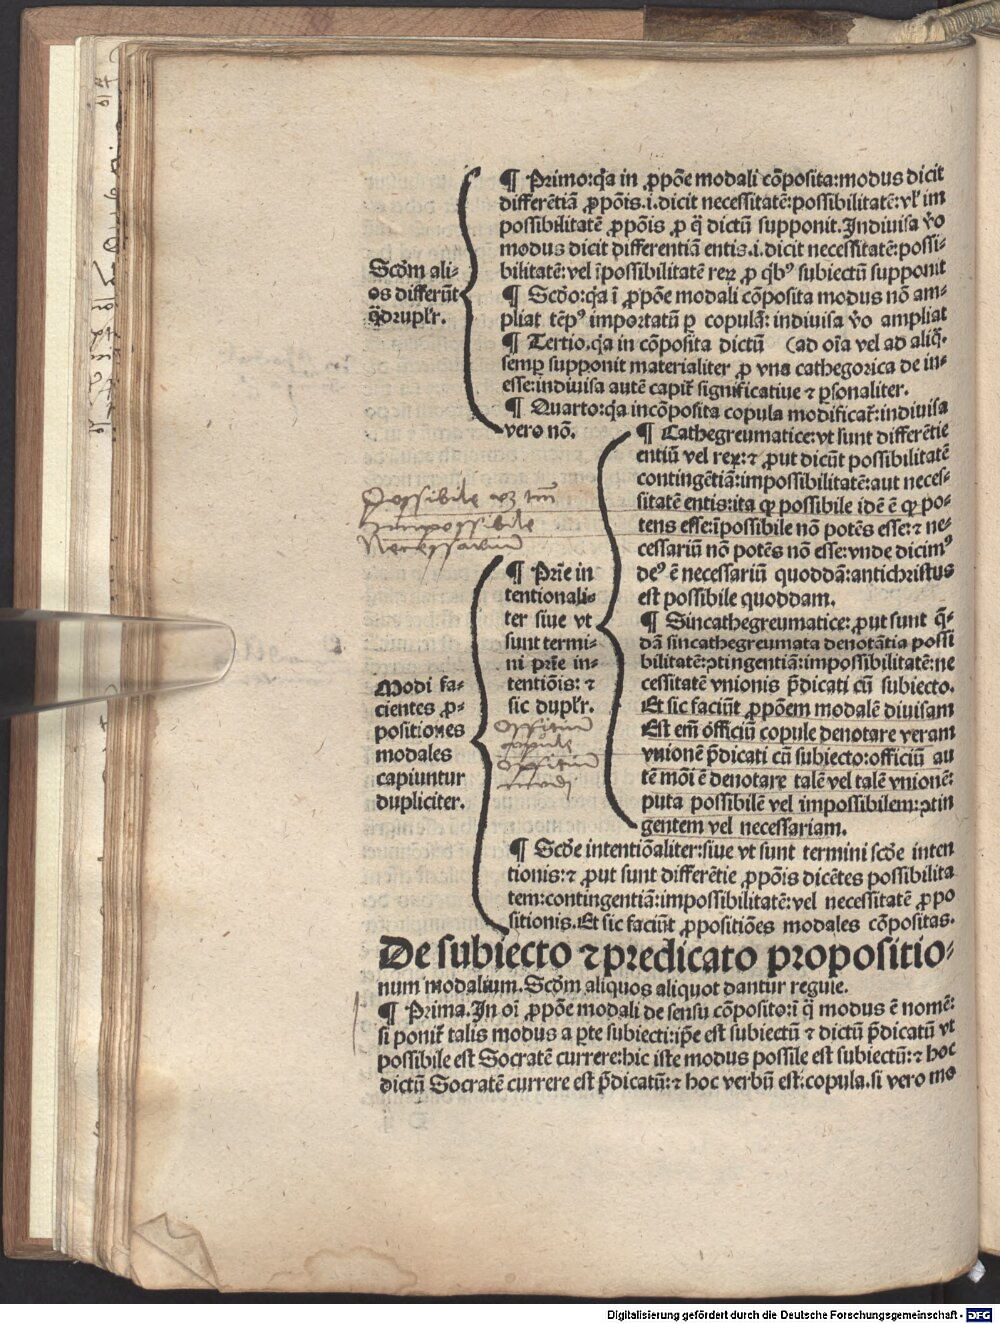 ¶ Primo:q̄a in ꝓpōe modali cōposita:modus dicit
differētiā ꝓpōis.i.dicit necessitatē:possibilitatē:vl' im
possibilitatē ꝓpōis ꝓ q̄ dictū supponit. Indiuisa v̄o
modus dicit differentiā entis.i.dicit necessitatē:possi-
bilitatē:vel īpossibilitatē reꝝ ꝓ qb' subiectū supponit
Scd̄m ali-
os differūt
q̄drupl'r.
¶ Scd̄o:q̄a ī ꝓpōe modali cōposita modus nō am-
pliat tēp' importatū ꝑ copulā: indiuisa v̄o ampliat
¶ Tertio.q̄a in cōposita dictū (ad oīa vel ad aliq̄.
semꝑ supponit materialiter ꝓ vna cathegorica de in-
esse:indiuisa autē capit̄ significatiue ⁊ ꝑsonaliter.
¶ Quarto:q̄a incōposita copula modificat̄:indiuisa
vero nō.
¶ Cathegreumatice:vt sunt differētie
entiū vel reꝝ:⁊ ꝓut dicūt possibilitatē
contingētiā:impossibilitatē:aut neces-
sitatē entis:ita ꝙ possibile idē ē ꝙ po-
tens esse:īpossibile nō potēs esse:⁊ ne-
cessariū nō potēs nō esse:vnde dicim'
de' ē necessariū quoddā:antichristus
est possibile quoddam.
Possibile
Impossibile
Necessarium
¶ Prīe in
tentionali-
ter siue vt
sunt termi-
ni prīe in-
tentiōis: ⁊
sic dupl'r.
Officium
copule
Officium
modi
¶ Sincathegreumatice: ꝓut sunt q̄-
dā sincathegreumata denotātia possi
bilitatē:ↄtingentiā:impossibilitatē:ne
cessitatē vnionis p̄dicati cū subiecto.
Et sic faciūt ꝓpōem modalē diuisam
Est em̄ officiū copule denotare veram
vnionē p̄dicati cū subiecto:officiū au
tē mōi ē denotare talē vel talē vnionē:
puta possibilē vel impossibilem:ↄtin
gentem vel necessariam.
Modi fa-
cientes ꝓ-
positiones
modales
capiuntur
dupliciter.
¶ Scd̄e intentiōaliter:siue vt sunt termini scd̄e inten
tionis:⁊ ꝓut sunt differētie ꝓpōis dicētes possibilita
tem:contingentiā:impossibilitatē:vel necessitatē ꝓpo
sitionis.Et sic faciūt ꝓpositiōes modales cōpositas.
De subiecto ⁊ predicato propositio-
num modalium. Scd̄m aliquos aliquot dantur regule.
¶ Prima. In oī ꝓpōe modali de sensu cōposito:ī q̄ modus ē nomē:
si ponit̄ talis modus a ꝑte subiecti:ip̄e est subiectū ⁊ dictū p̄dicatū vt
possibile est Socratē currere:hic iste modus possile est subiectū:⁊ hoc
dictū Socratē currere est p̄dicatū:⁊ hoc verbū est:copula.si vero mo
Digitalisierung gefördert durch die Deutsche Forschungsgemeinschaft - DFG